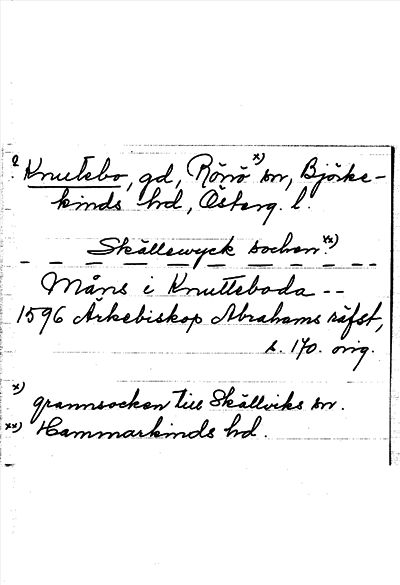 ? Knutebo, gd, Rönö x) sn, Björke-
kinds hd, Österg. l.
Skällewyck sochen xx)
_ _ _ _ _ _ _ _ _ _ _ _
Måns i Knutteboda --
1596 Ärkebiskop Abrahams räfst,
s. 170. orig.
x) grannsocken till Skällviks sn.
xx) Hammarkinds hd.